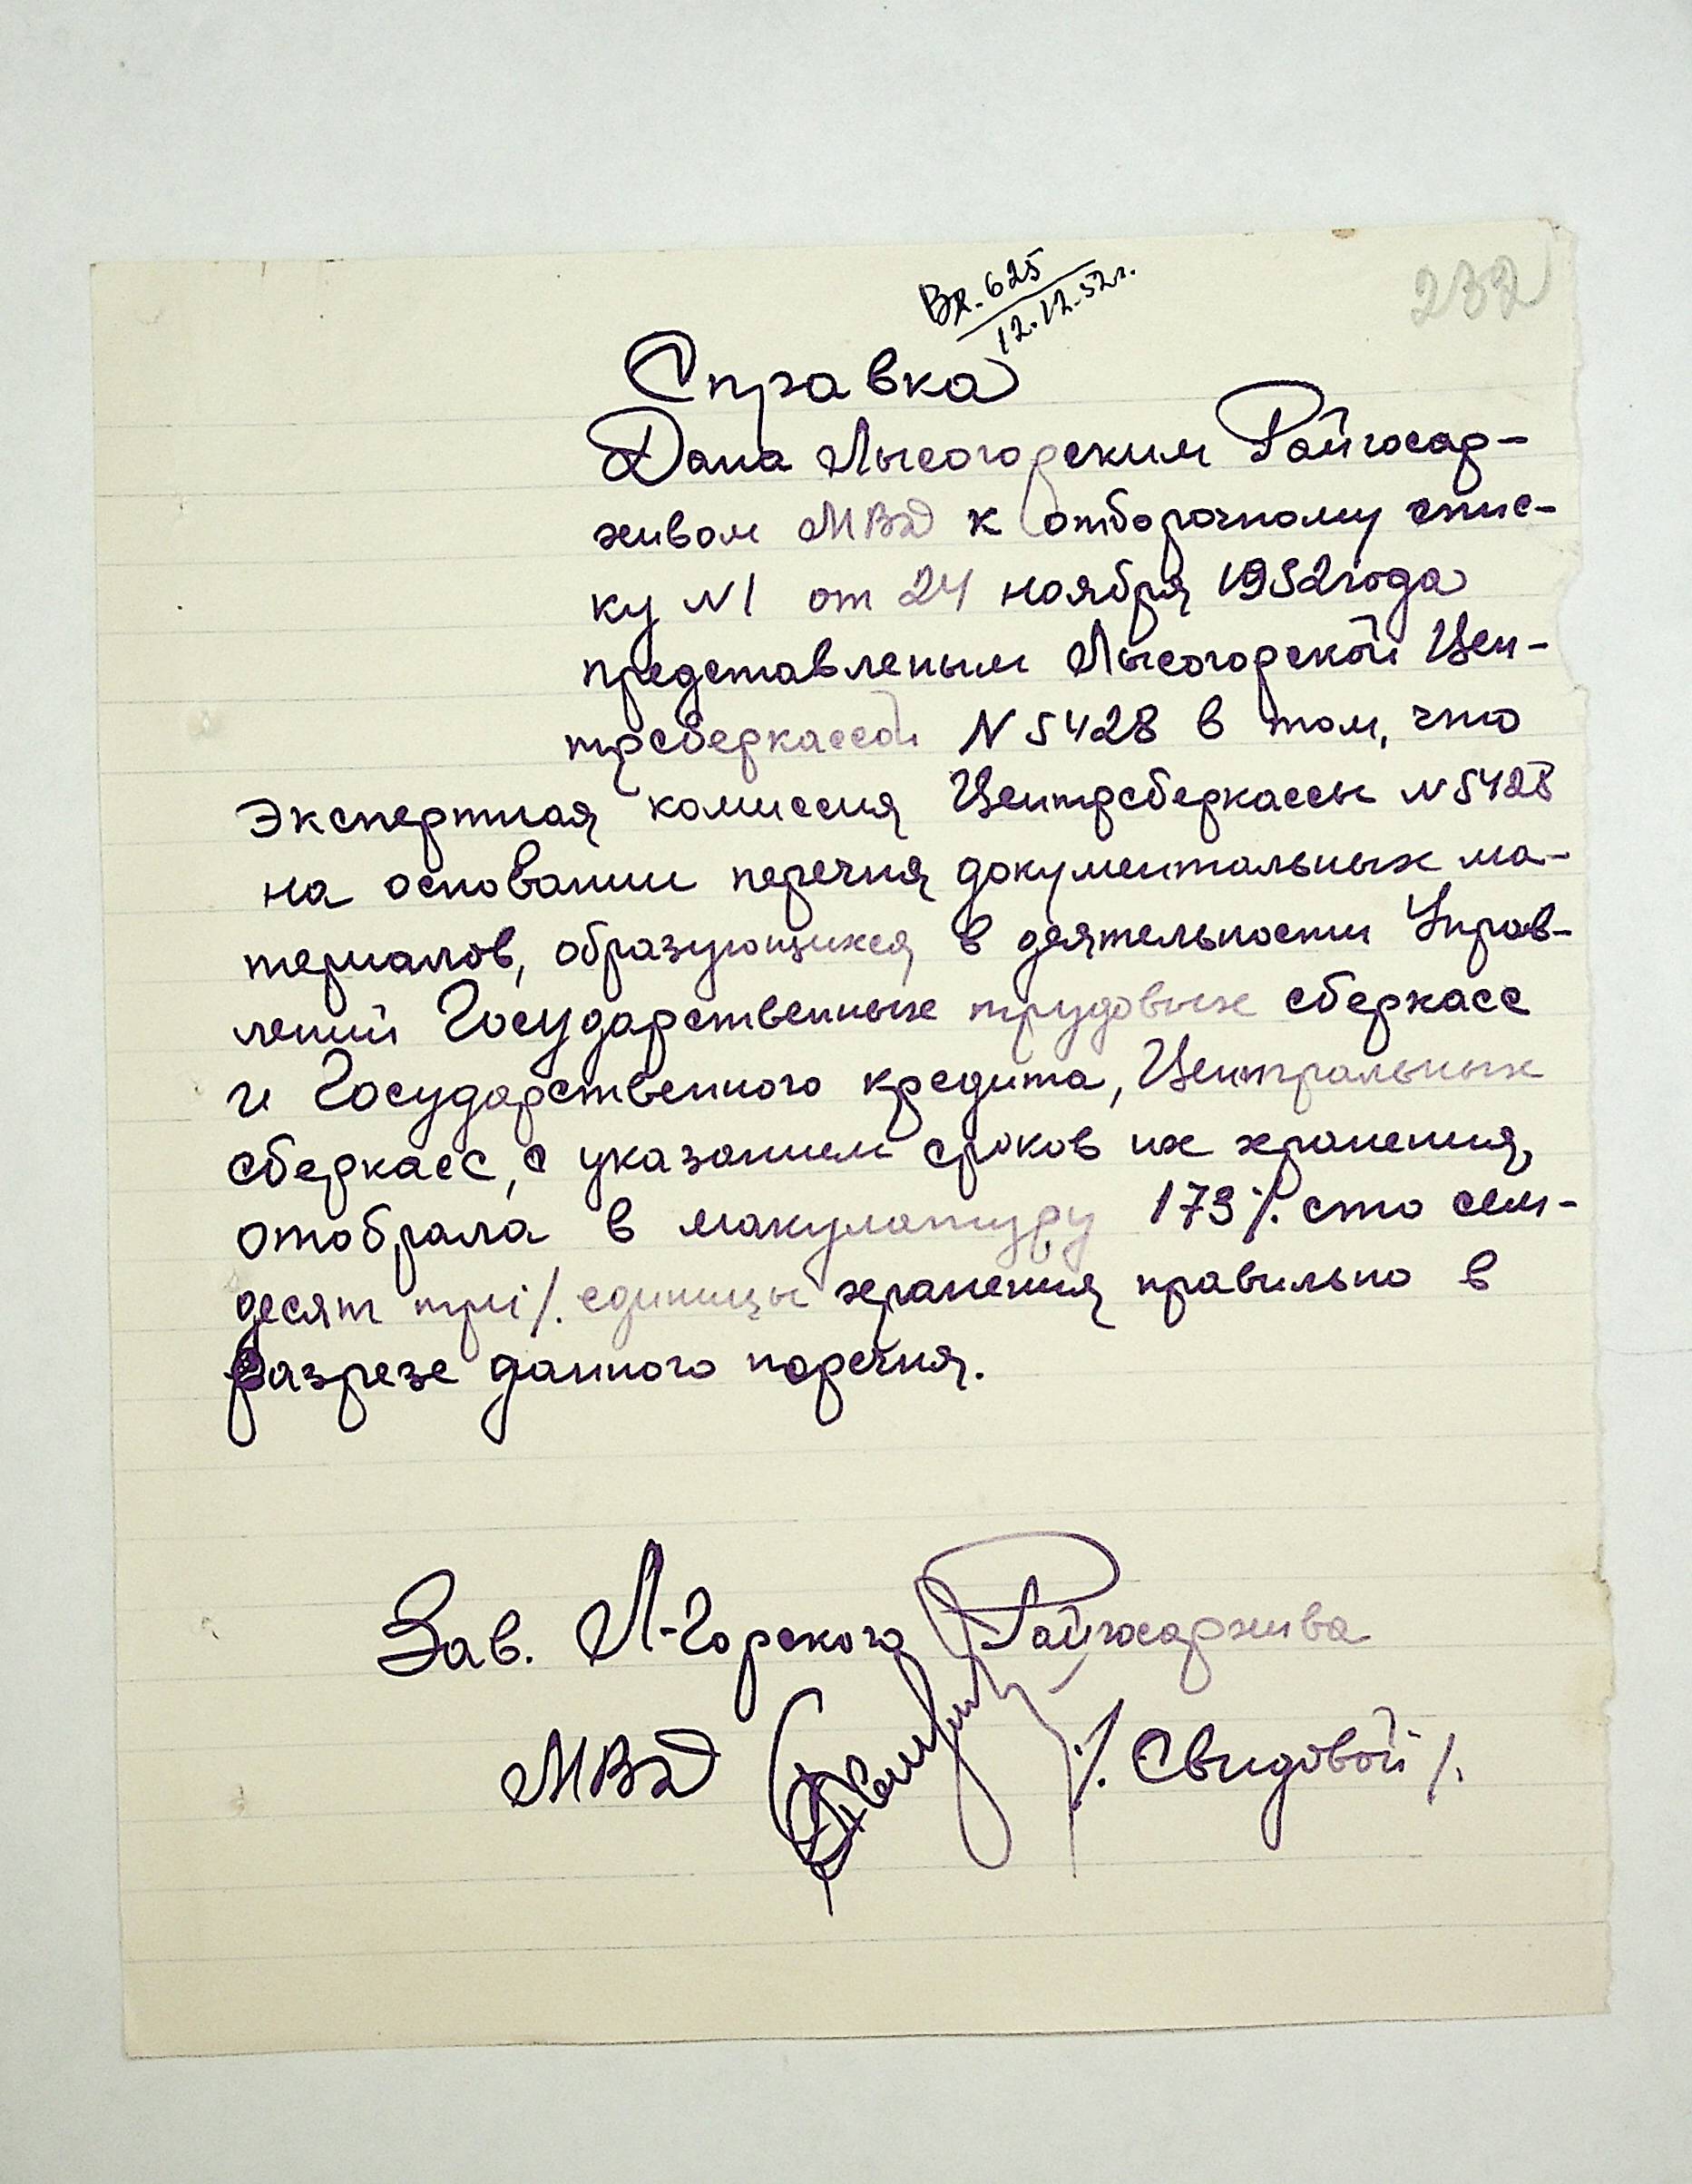 Вх. 625
12.12.52г.
232
Справка
Дана Лысогорским Райгосар-
хивом МВД к отборочному спис-
ку N1 от 24 ноября 1952 года
представленым Лысогорской Цен-
трсберкассой N 5428 в том, что
Экспертная комиссия Центрсберкассы N 5428
на основании перечня документальных ма-
териалов, образующихся в деятельности Управ-
лений Государственных трудовых сберкасс
и Государственного кредита, Центральных
сберкасс, с указанием сроков их хранения,
отобрала в макулатуру 173 /. сто сем-
десят три /. единицы хранения правильно в
разрезе данного перечня.
Зав. Л-Горского Райгосархива
МВД /. Свидовой /.